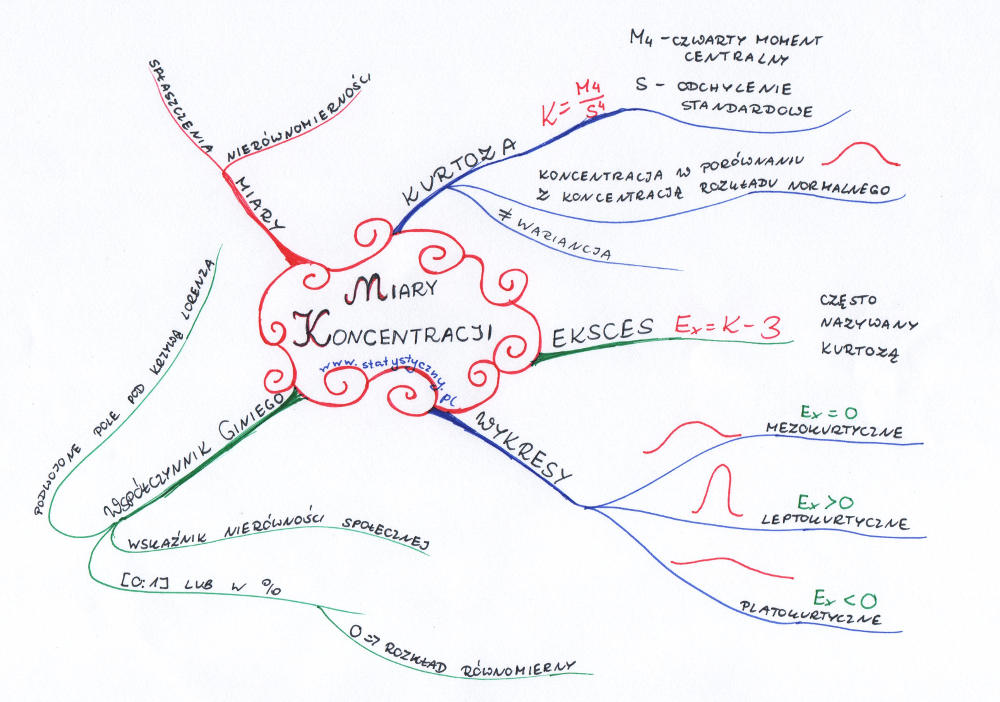 MIARY
KONCENTRACJI
www.statystyczny.pl
MIARY
SPŁASZCZENIA
NIERÓWNOMIERNOŚCI
KURTOZA
K = M4/S⁴
M4 - CZWARTY MOMENT
CENTRALNY
S - ODCHYLENIE
STANDARDOWE
KONCENTRACJA W PORÓWNANIU
Z KONCENTRACJĄ ROZKŁADU NORMALNEGO
≠ WARIANCJA
EKSCES Ex = K - 3
CZĘSTO
NAZYWANY
KURTOZĄ
WYKRESY
Ex = 0
MEZOKURTYCZNE
Ex > 0
LEPTOKURTYCZNE
Ex < 0
PLATOKURTYCZNE
WSPÓŁCZYNNIK GINIEGO
PODWOJONE POLE POD KRZYWĄ LORENZA
WSKAŹNIK NIERÓWNOŚCI SPOŁECZNEJ
[0:1] LUB W %
0 => ROZKŁAD RÓWNOMIERNY